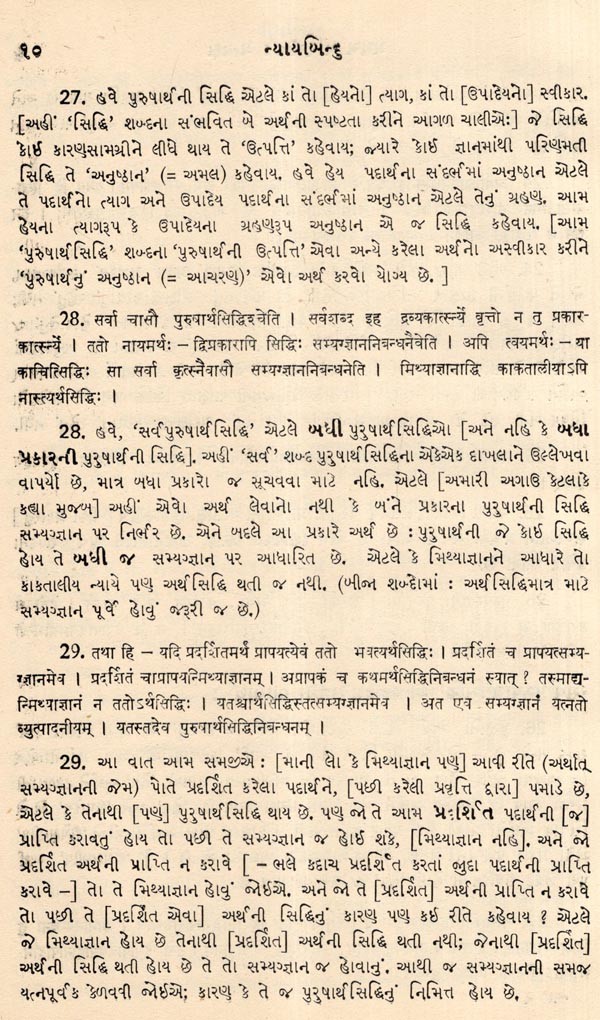 ૧૦ ન્યાયબિન્દુ
27. હવે પુરુષાર્થની સિદ્ધિ એટલે કાં તો [હેયનો] ત્યાગ, કાં તો [ઉપાદેયનો] સ્વીકાર.
[અહીં ‘સિદ્ધિ’ શબ્દના સંભવિત બે અર્થની સ્પષ્ટતા કરીને આગળ ચાલીએઃ] જે સિદ્ધિ
કોઈ કારણસામગ્રીને લીધે થાય તે ‘ઉત્પત્તિ’ કહેવાય; જ્યારે કોઈ જ્ઞાનમાંથી પરિણમતી
સિદ્ધિ તે ‘અનુષ્ઠાન’ (= અમલ) કહેવાય. હવે હેય પદાર્થના સંદર્ભમાં અનુષ્ઠાન એટલે
તે પદાર્થનો ત્યાગ અને ઉપાદેય પદાર્થના સંદર્ભમાં અનુષ્ઠાન એટલે તેનું ગ્રહણ. આમ
હેયના ત્યાગરૂપ કે ઉપાદેયના ગ્રહણરૂપ અનુષ્ઠાન એ જ સિદ્ધિ કહેવાય. [આમ
‘પુરુષાર્થસિદ્ધિ’ શબ્દના ‘પુરુષાર્થની ઉત્પત્તિ’ એવા અન્યે કરેલા અર્થનો અસ્વીકાર કરીને
‘પુરુષાર્થનું અનુષ્ઠાન (= આચરણ)’ એવો અર્થ કરવો યોગ્ય છે. ]
28. सर्वा चासौ पुरुषार्थसिद्धिश्चेति । सर्वशब्द इह द्रव्यकार्त्स्न्ये वृत्तो न तु प्रकार-
कार्त्स्न्ये । ततो नायमर्थः – द्विप्रकारापि सिद्धिः सम्यग्ज्ञाननिबन्धनैवेति । अपि त्वयमर्थः – या
काचित्सिद्धिः सा सर्वा कृत्स्नैवासौ सम्यग्ज्ञाननिबन्धनेति । मिथ्याज्ञानाद्धि काकतालीयाऽपि
नास्त्यर्थसिद्धिः ।
28. હવે, ‘સર્વપુરુષાર્થસિદ્ધિ’ એટલે બધી પુરુષાર્થસિદ્ધિઓ [અને નહિ કે બધા
પ્રકારની પુરુષાર્થની સિદ્ધિ]. અહીં ‘સર્વ’ શબ્દ પુરુષાર્થસિદ્ધિના એકેએક દાખલાને ઉલ્લેખવા
વાપર્યો છે, માત્ર બધા પ્રકારો જ સૂચવવા માટે નહિ. એટલે [અમારી અગાઉ કેટલાકે
કહ્યા મુજબ] અહીં એવો અર્થ લેવાનો નથી કે બંને પ્રકારના પુરુષાર્થની સિદ્ધિ
સમ્યગ્જ્ઞાન પર નિર્ભર છે. એને બદલે આ પ્રકારે અર્થ છે : પુરુષાર્થની જે કોઈ સિદ્ધિ
હોય તે બધી જ સમ્યગ્જ્ઞાન પર આધારિત છે. એટલે કે મિથ્યાજ્ઞાનને આધારે તો
કાકતાલીય ન્યાયે પણ અર્થસિદ્ધિ થતી જ નથી. (બીજા શબ્દોમાં : અર્થસિદ્ધિમાત્ર માટે
સમ્યગ્જ્ઞાન પૂર્વે હોવું જરૂરી જ છે.)
29. तथा हि – यदि प्रदर्शितमर्थं प्रापयत्येवं ततो भवत्यर्थसिद्धिः । प्रदर्शितं च प्रापयत्सम्य-
ग्ज्ञानमेव । प्रदर्शितं चाप्रापयन्मिथ्याज्ञानम् । अप्रापकं च कथमर्थसिद्धिनिबन्धनं स्यात् ? तस्माद्य-
न्मिथ्याज्ञानं न ततोऽर्थसिद्धिः । यतश्चार्थसिद्धिस्तत्सम्यग्ज्ञानमेव । अत एव सम्यग्ज्ञानं यत्नतो
व्युत्पादनीयम् । यतस्तदेव पुरुषार्थसिद्धिनिबन्धनम् ।
29. આ વાત આમ સમજીએ : [માની લો કે મિથ્યાજ્ઞાન પણ] આવી રીતે (અર્થાત્
સમ્યગ્જ્ઞાનની જેમ) પોતે પ્રદર્શિત કરેલા પદાર્થને, [પછી કરેલી પ્રવૃત્તિ દ્વારા] પમાડે છે,
એટલે કે તેનાથી [પણ] પુરુષાર્થસિદ્ધિ થાય છે. પણ જો તે આમ પ્રદર્શિત પદાર્થની [જ]
પ્રાપ્તિ કરાવતું હોય તો પછી તે સમ્યગ્જ્ઞાન જ હોઈ શકે, [મિથ્યાજ્ઞાન નહિ]. અને જો
પ્રદર્શિત અર્થની પ્રાપ્તિ ન કરાવે [ – ભલે કદાચ પ્રદર્શિત કરતાં જુદા પદાર્થની પ્રાપ્તિ
કરાવે –] તો તે મિથ્યાજ્ઞાન હોવું જોઈએ. અને જો તે [પ્રદર્શિત] અર્થની પ્રાપ્તિ ન કરાવે
તો પછી તે [પ્રદર્શિત એવા] અર્થની સિદ્ધિનું કારણ પણ કઈ રીતે કહેવાય ? એટલે
જે મિથ્યાજ્ઞાન હોય છે તેનાથી [પ્રદર્શિત] અર્થની સિદ્ધિ થતી નથી; જેનાથી [પ્રદર્શિત]
અર્થની સિદ્ધિ થતી હોય છે તે તો સમ્યગ્જ્ઞાન જ હોવાનું. આથી જ સમ્યગ્જ્ઞાનની સમજ
યત્નપૂર્વક કેળવવી જોઈએ; કારણ કે તે જ પુરુષાર્થસિદ્ધિનું નિમિત્ત હોય છે.